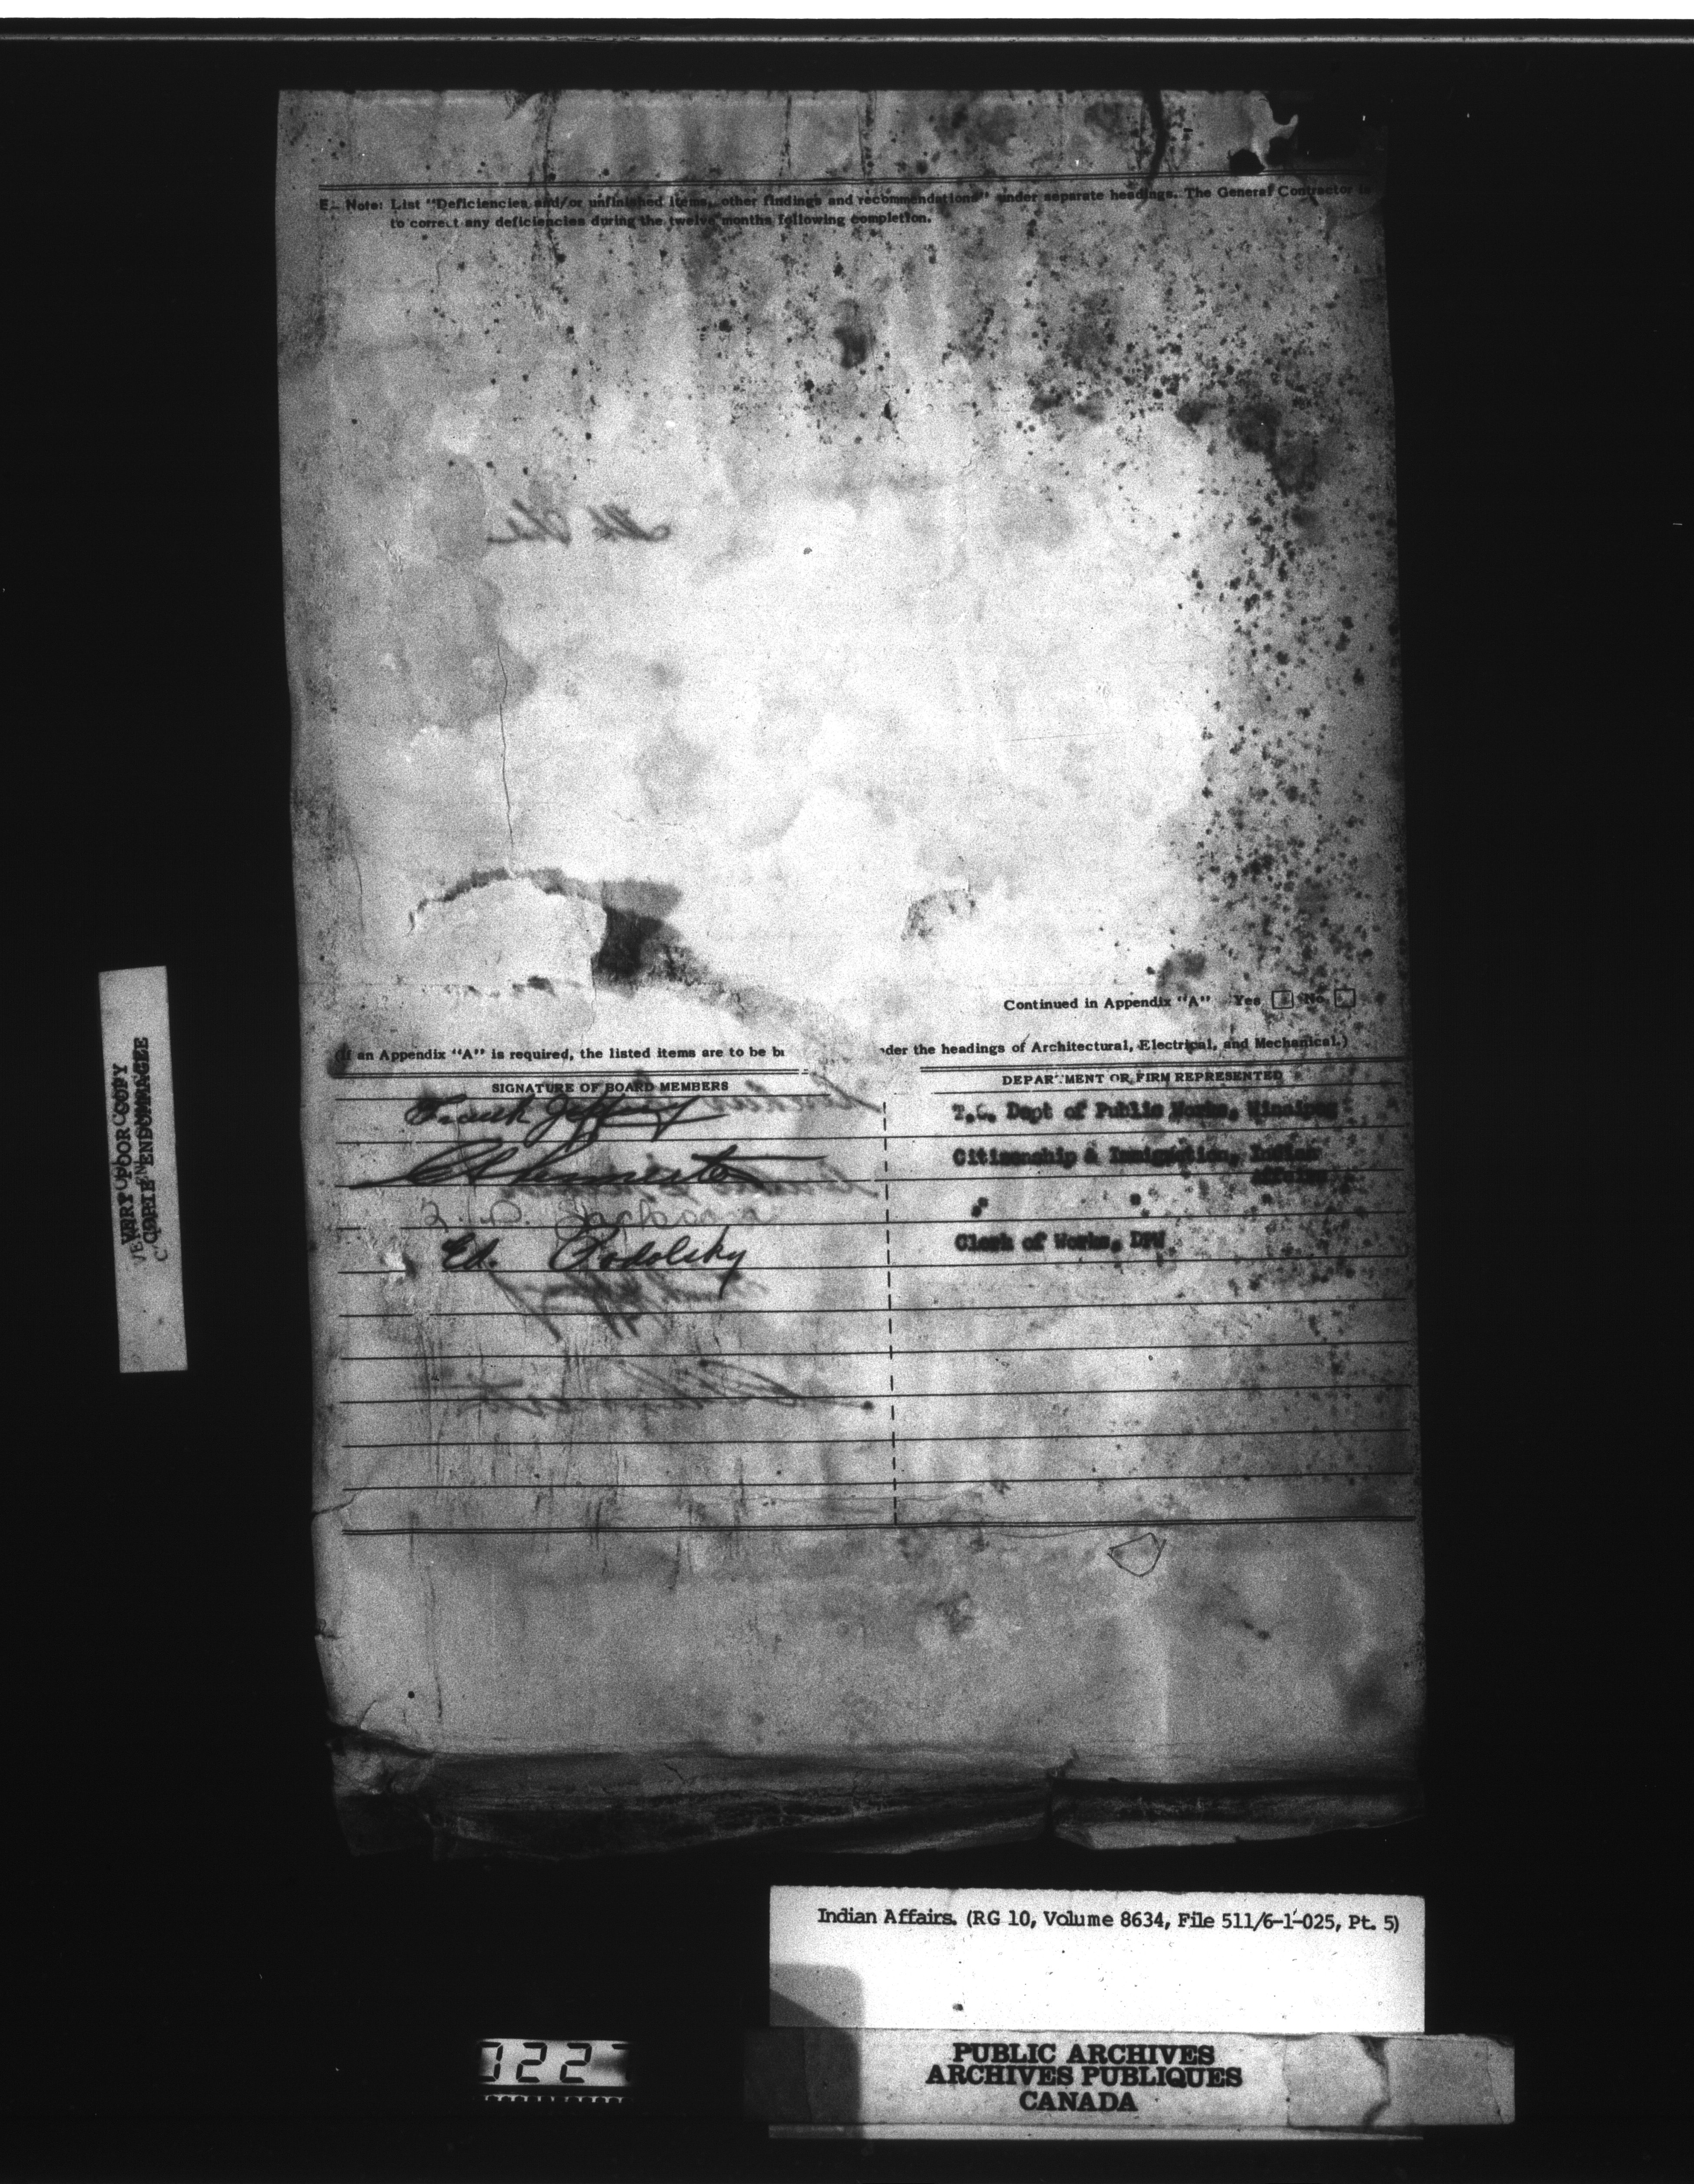 E. Note: List "Deficiencies and/or unfinished items, other findings and recommendations" under separate headings. The General Contractor is
to correct any deficiencies during the twelve months following completion.
Continued in Appendix "A" Yes No
(If an Appendix "A" is required, the listed items are to be under the headings of Architectural, Electrical, and Mechanical.)
SIGNATURE OF BOARD MEMBERS DEPARTMENT OR FIRM REPRESENTED
Frank Jeffrey T.C. Dept of Public Works, Winnipeg
Citizenship & Immigration, Indian
Affairs
" "
Ed. Podolsky Clerk of Works, DPW
VERY POOR COPY
COPIE ENDOMMAGEE
Indian Affairs. (RG 10, Volume 8634, File 511/6-1-025, Pt. 5)
PUBLIC ARCHIVES
ARCHIVES PUBLIQUES
CANADA